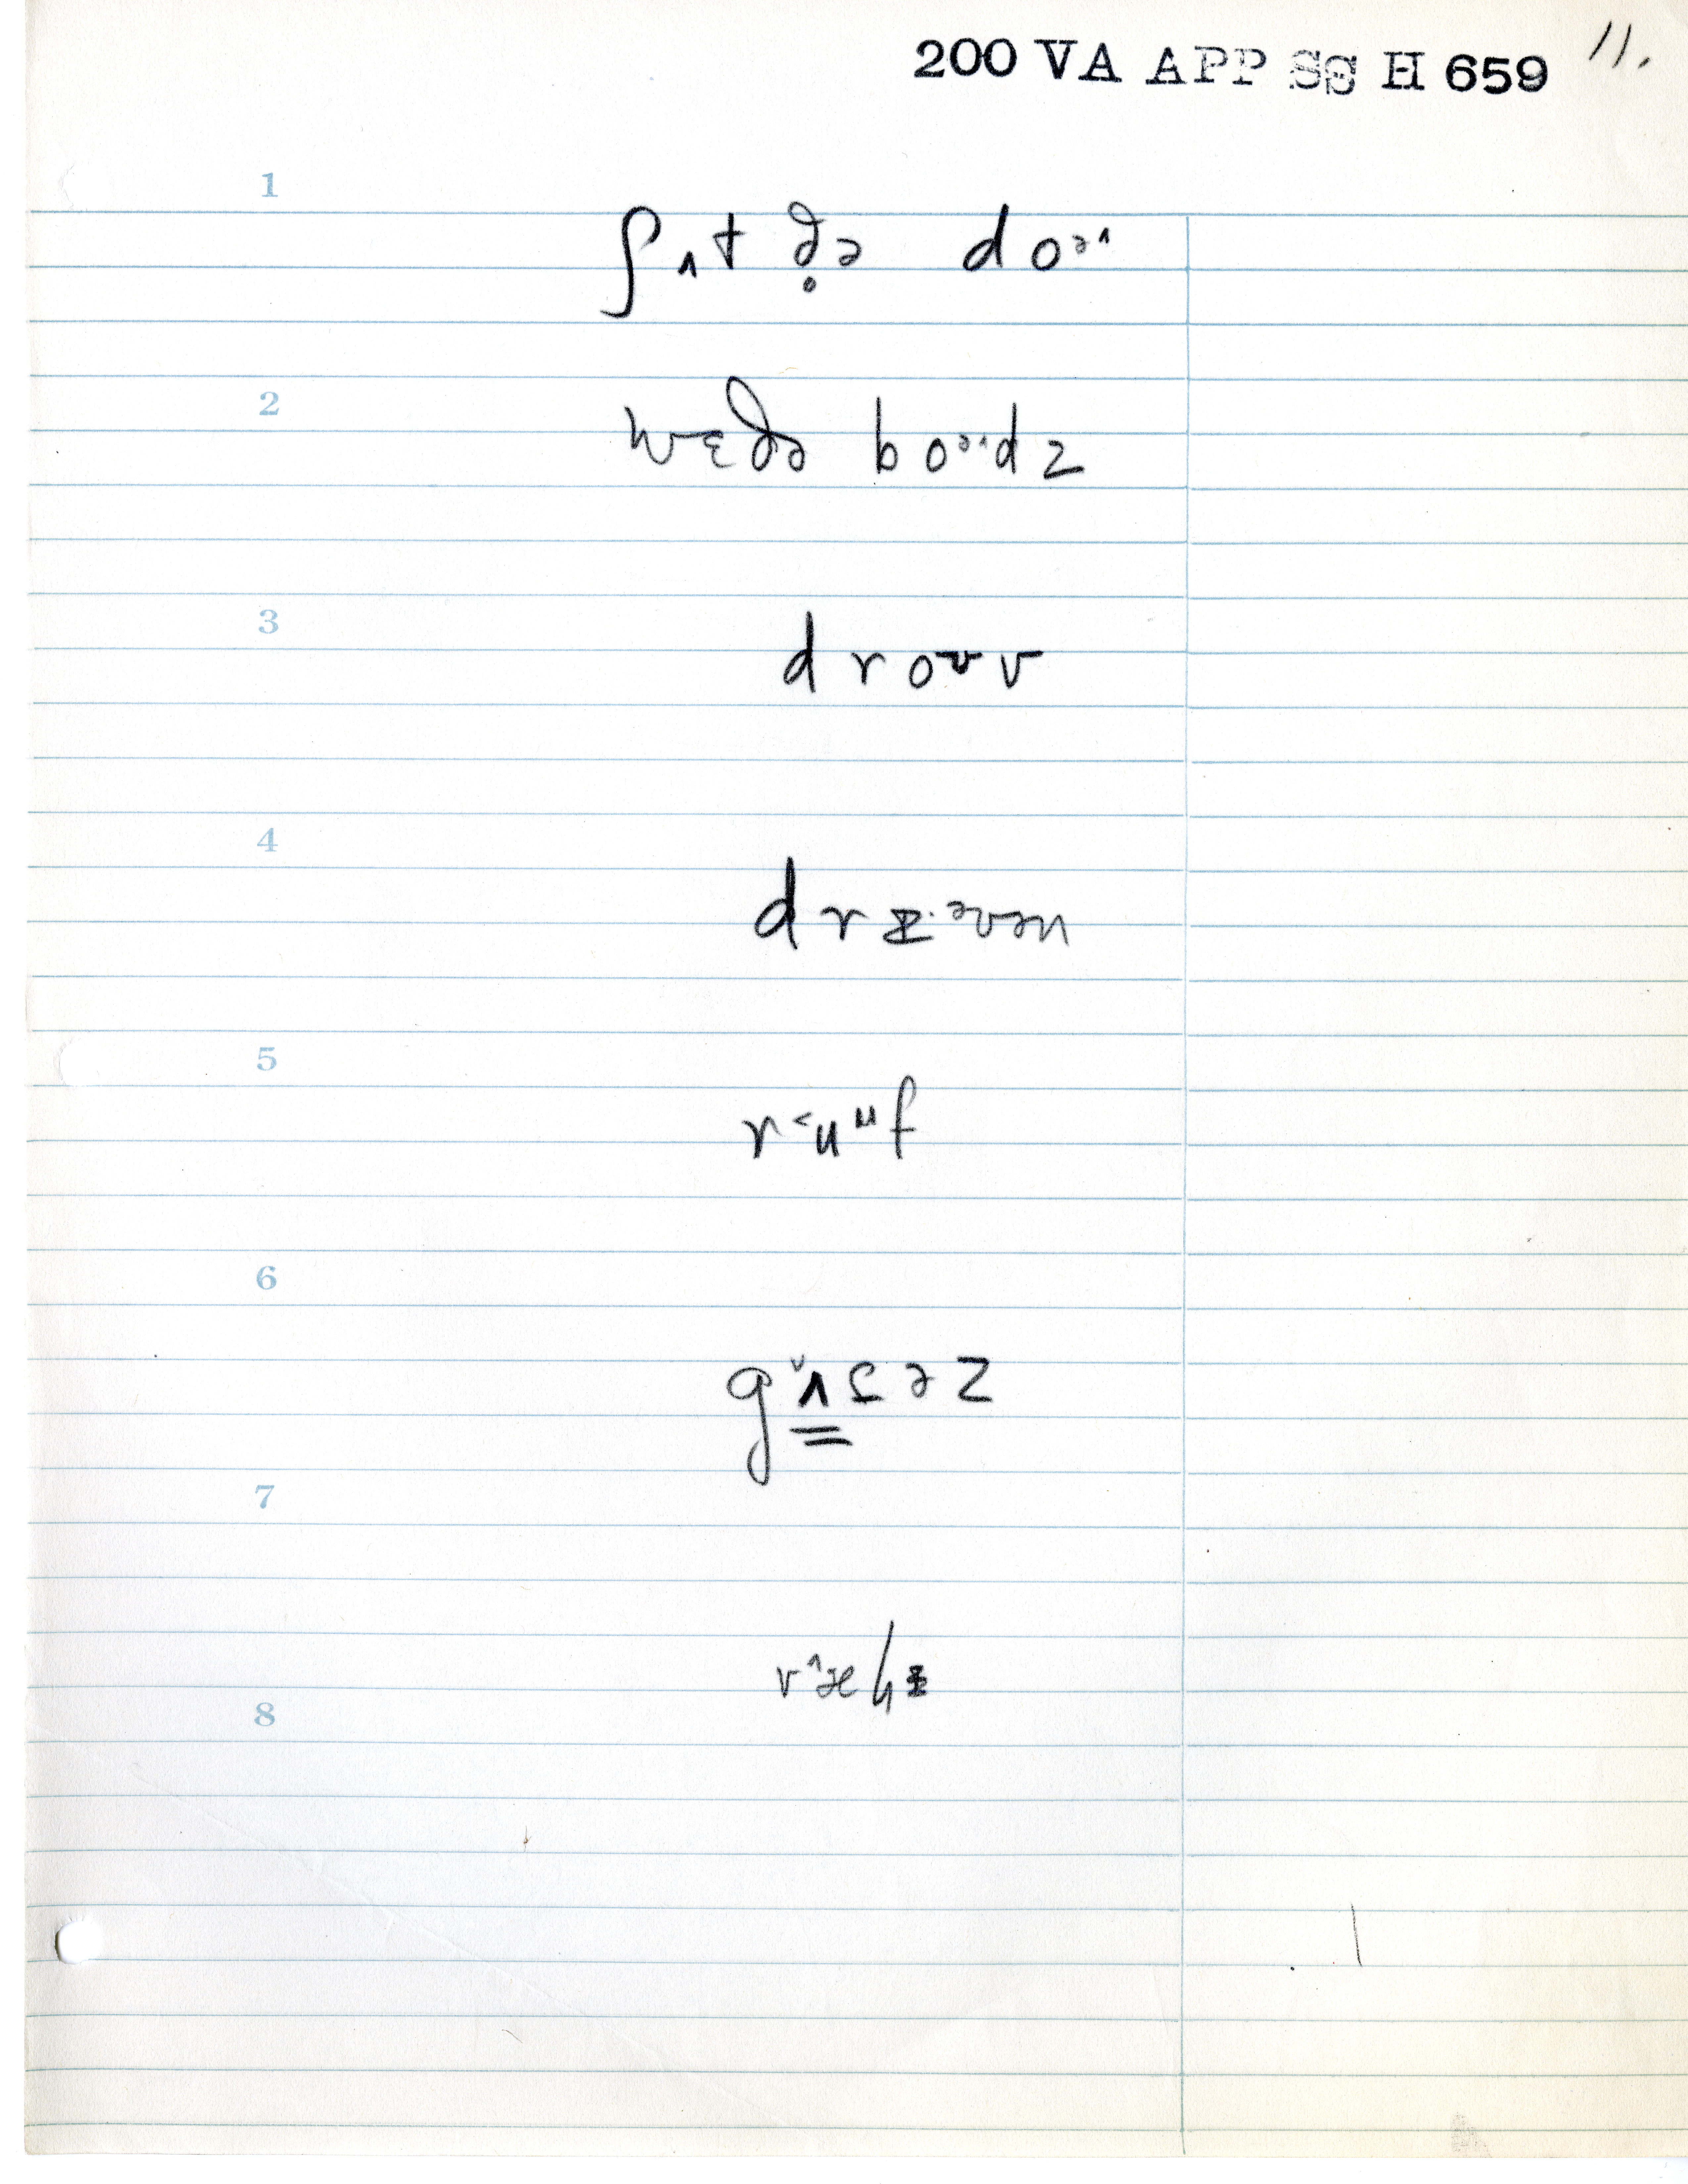 200 VA APP SS H 659 11.
1
ʃʌt ð̥ə doᵊ˄
2
wɛðə boᵊ˄dz
3
droʊv
4
drɪ·ᵊvən
5
r˂uᵚf
6
gʌ̳̌səz
7
8